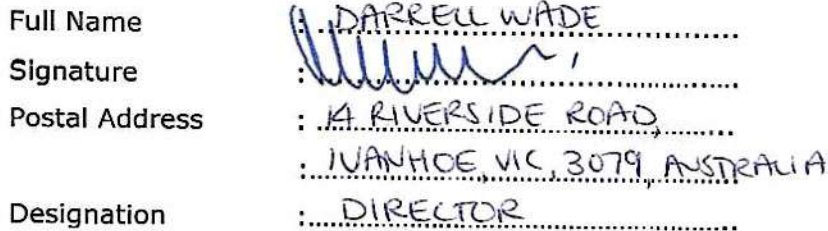 Full Name : DARRELL WADE
Signature :
Postal Address : 14 RIVERSIDE ROAD,
: IVANHOE, VIC, 3079, AUSTRALIA
Designation : DIRECTOR